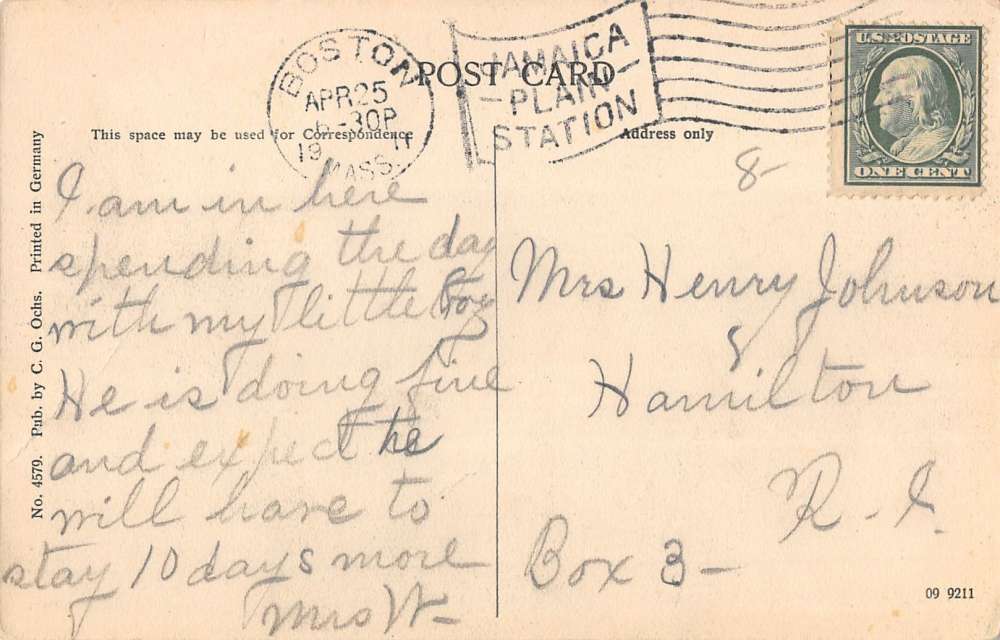 BOSTON
APR 25
6-30P
19 11
MASS.
JAMAICA
PLAIN
STATION
POST CARD
U.S. POSTAGE
ONE CENT
This space may be used for Correspondence
Address only
No. 4579. Pub. by C. G. Ochs. Printed in Germany
I am in here
spending the day
with my little boy
He is doing fine
and expect he
will have to
stay 10 days more
Mrs W-
8-
Mrs Henry Johnson
Hamilton
R. I.
Box 3-
09 9211